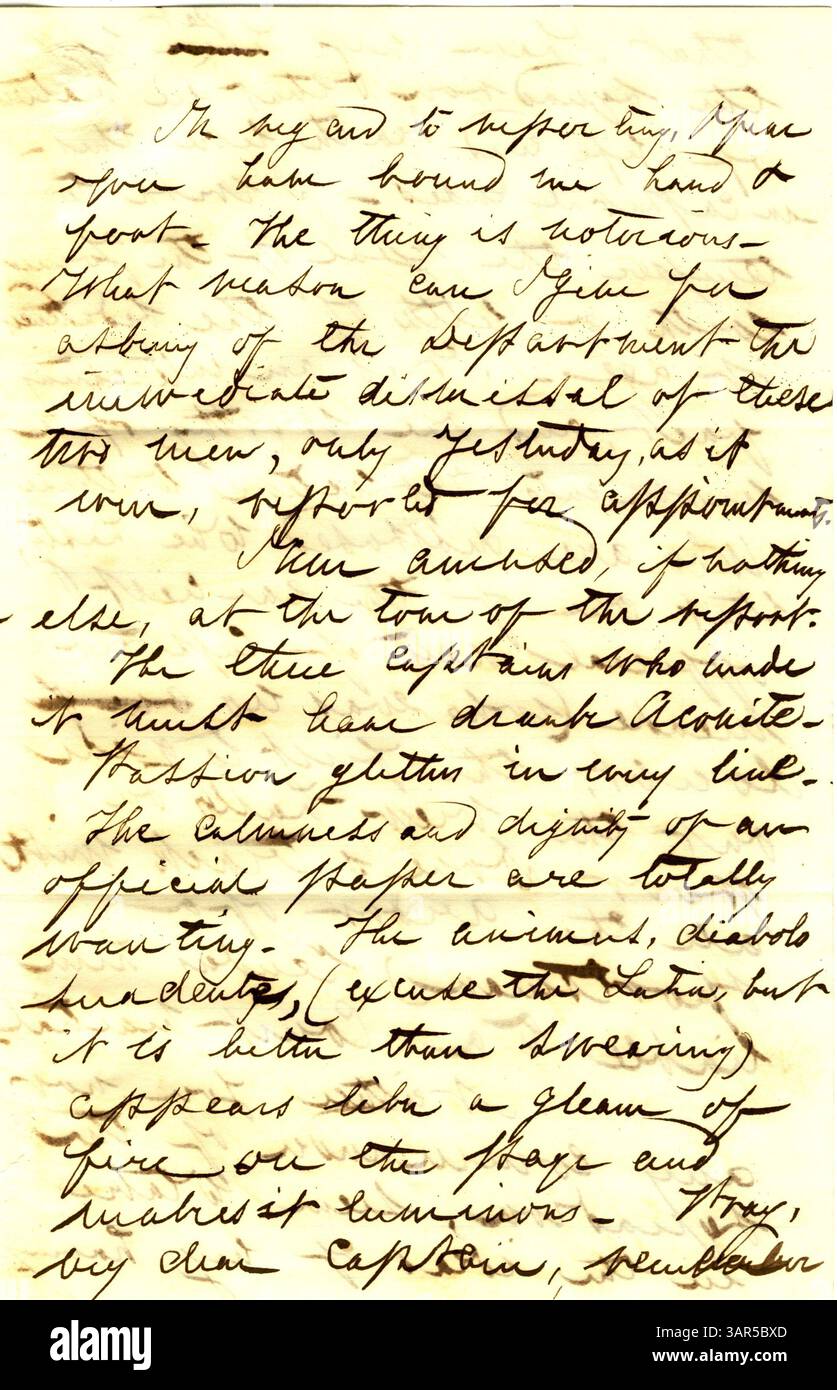 In regard to reporting, I fear
you have bound me hand &
foot - The thing is notorious -
What reason can I give for
asking of the Department the
immediate dismissal of these
two men, only yesterday, as it
were, reported for appointment.
I am amused, if nothing
else, at the tone of the report.
The three captains who made
it must have drank Aconite -
Passion glitters in every line -
The calmness and dignity of an
official paper are totally
wanting - The animus, diabolo
suadente, (excuse the Latin, but
it is better than swearing)
appears like a gleam of
fire on the page and
makes it luminous - Pray,
my dear Captain, remember
alamy
Image ID: 3AR5BXD
www.alamy.com